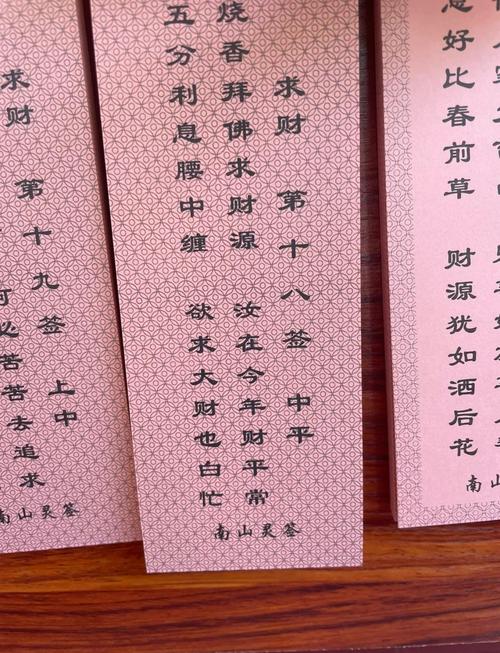 好比春前草 财源犹如洒后花
南山
求财 第十八签 中平
烧香拜佛求财源 汝在今年财平常
五分利息腰中缠 欲求大财也白忙
南山灵签
求财 第十九签 上中
必苦苦去追求
南山灵签